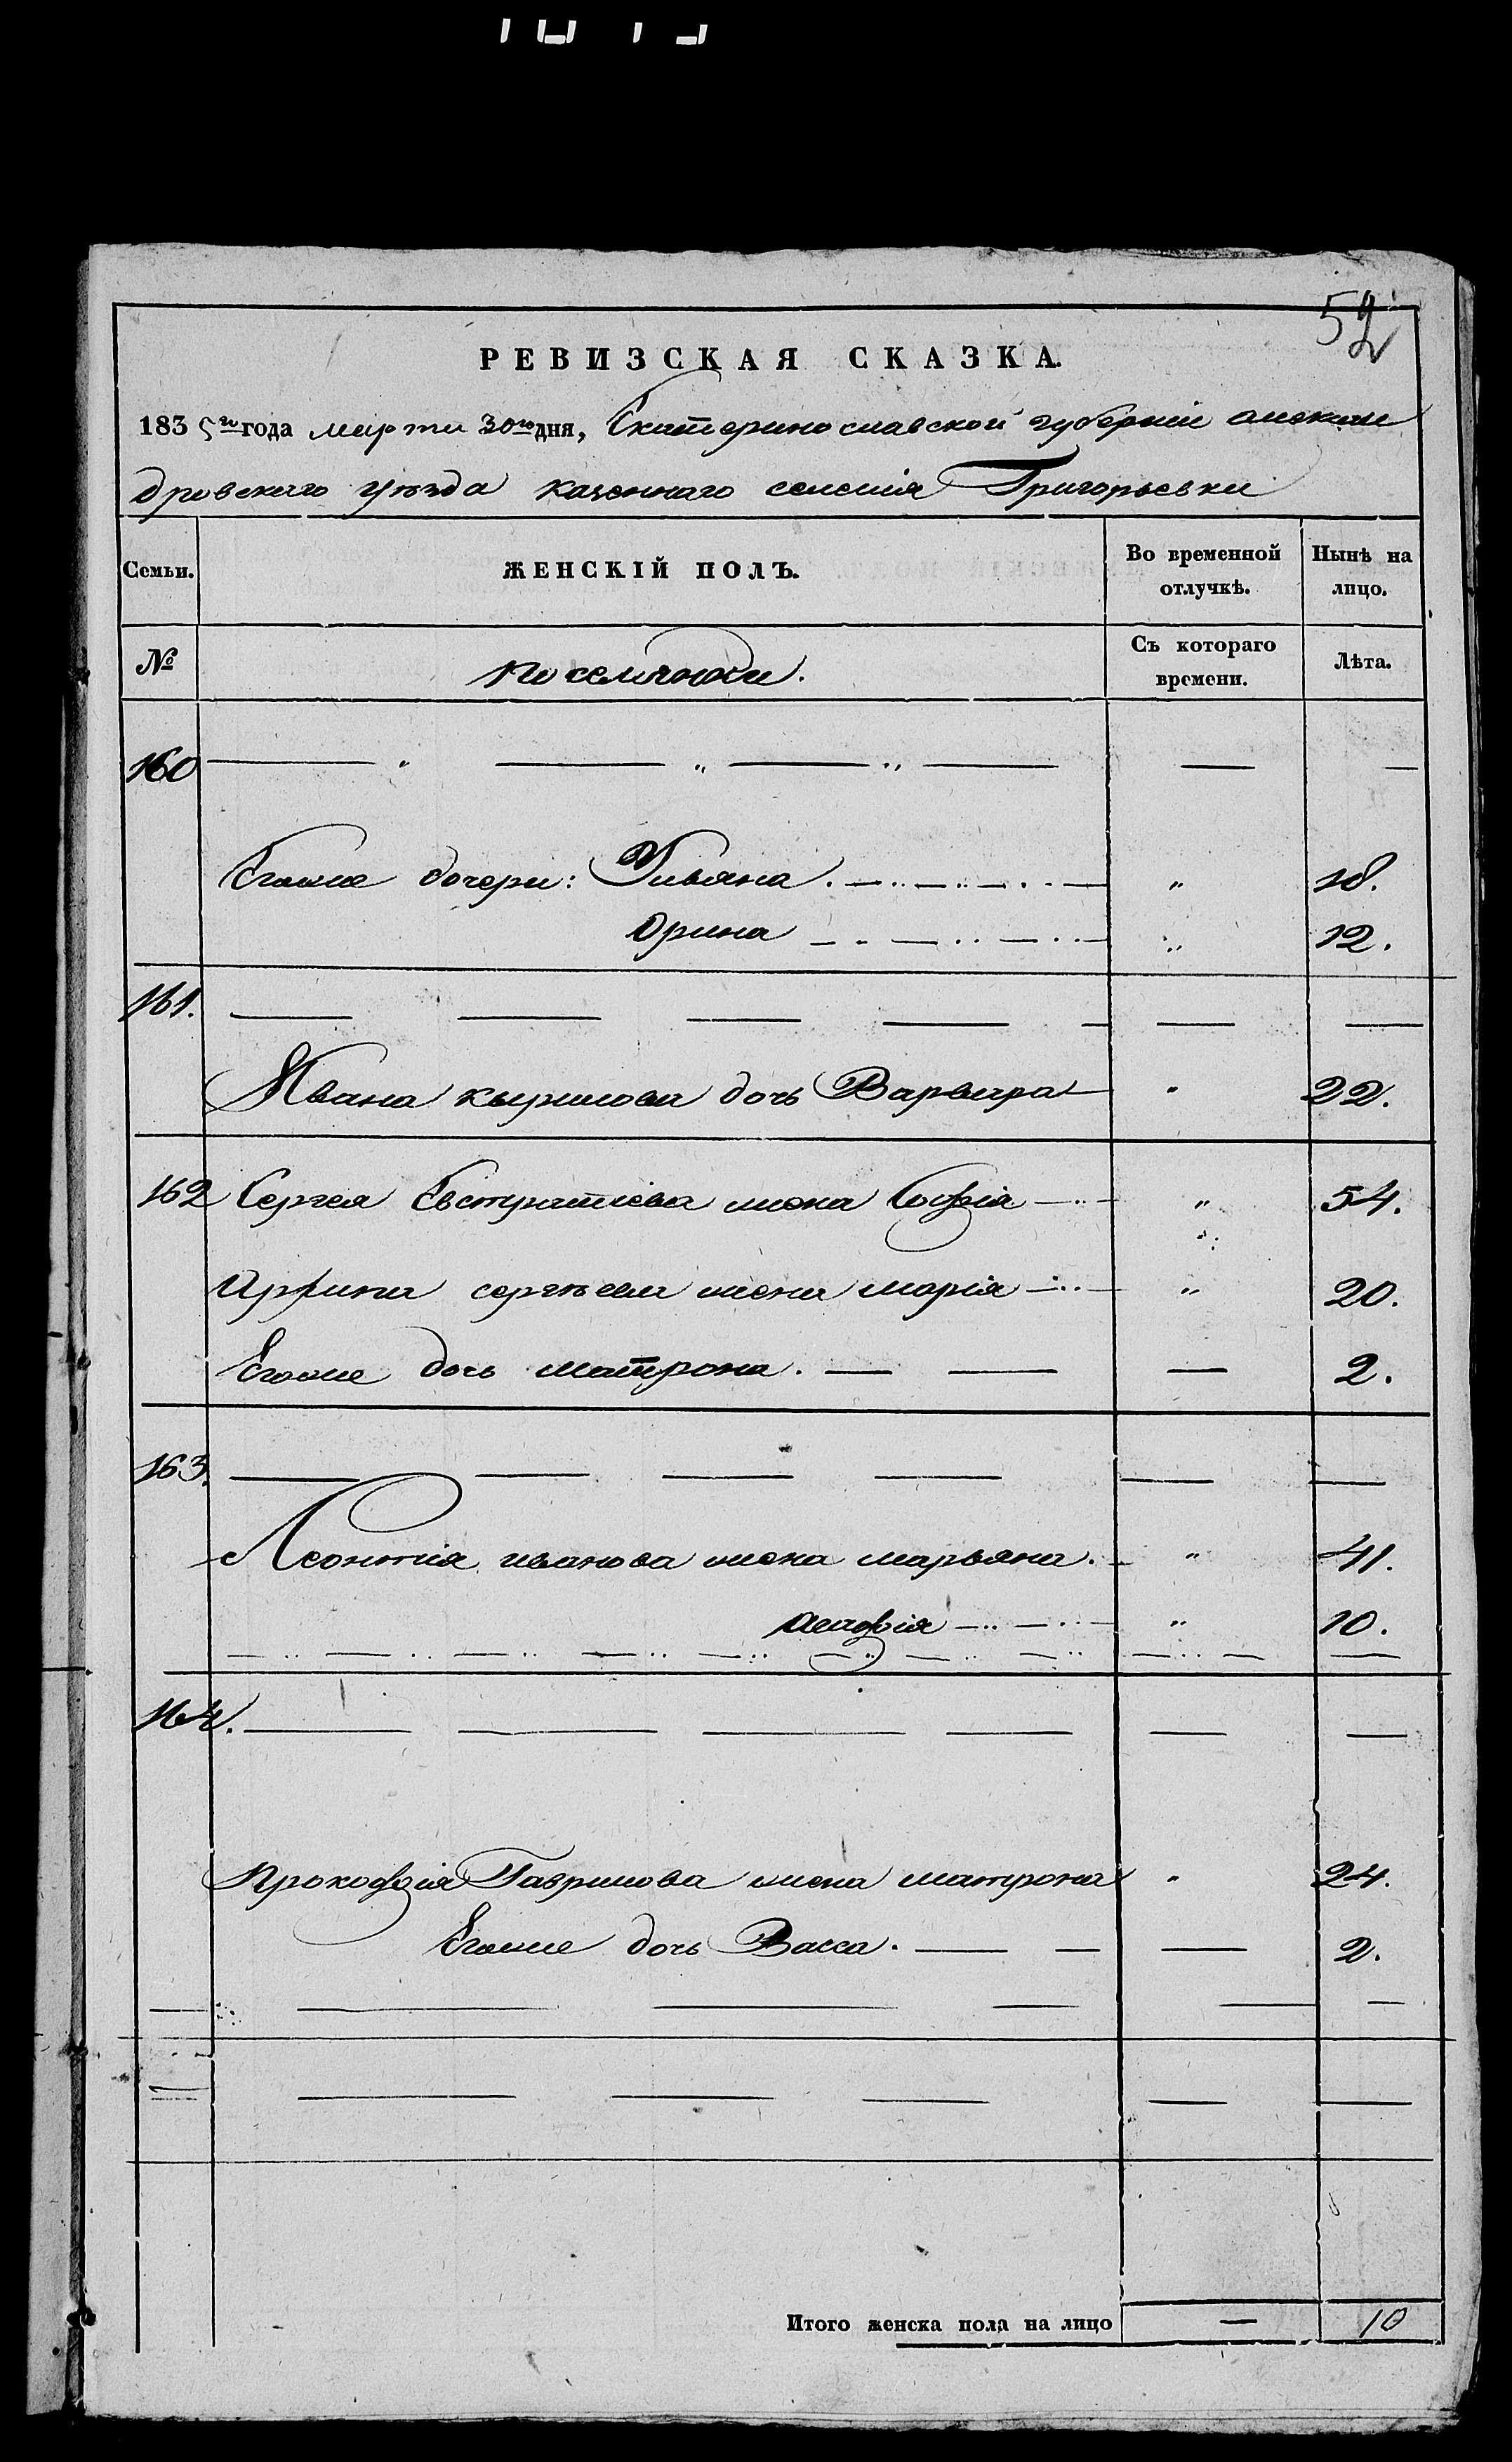 52
РЕВИЗСКАЯ СКАЗКА.
1835го года марта 30го дня, Екатеринославской губерніи алексан
дровскаго уѣзда казеннаго селенія Григорьевки
Семьи. ЖЕНСКІЙ ПОЛЪ. Во временной отлучкѣ. Нынѣ на лицо.
№ поселянки. Съ котораго времени. Лѣта.
160 — " — " — " — — —
Егоже дочери: Ульяна. " 18.
Орина " 12.
161. — — — — — — —
Ивана кырилова дочь Варвара " 22.
162 Сергея Евстратіева жена Софія " 54.
сергѣева жена марія " 20.
Егоже дочь матрона. — — — 2.
163. — — — — — —
Леонтія иванова жена марьяна. " 41.
" 10.
164. — — — — — —
Прокофія Гаврилова жена матрона " 24.
Егоже дочь Васса. — — — 2.
— — — — — —
— — — — — —
Итого женска пола на лицо — 10